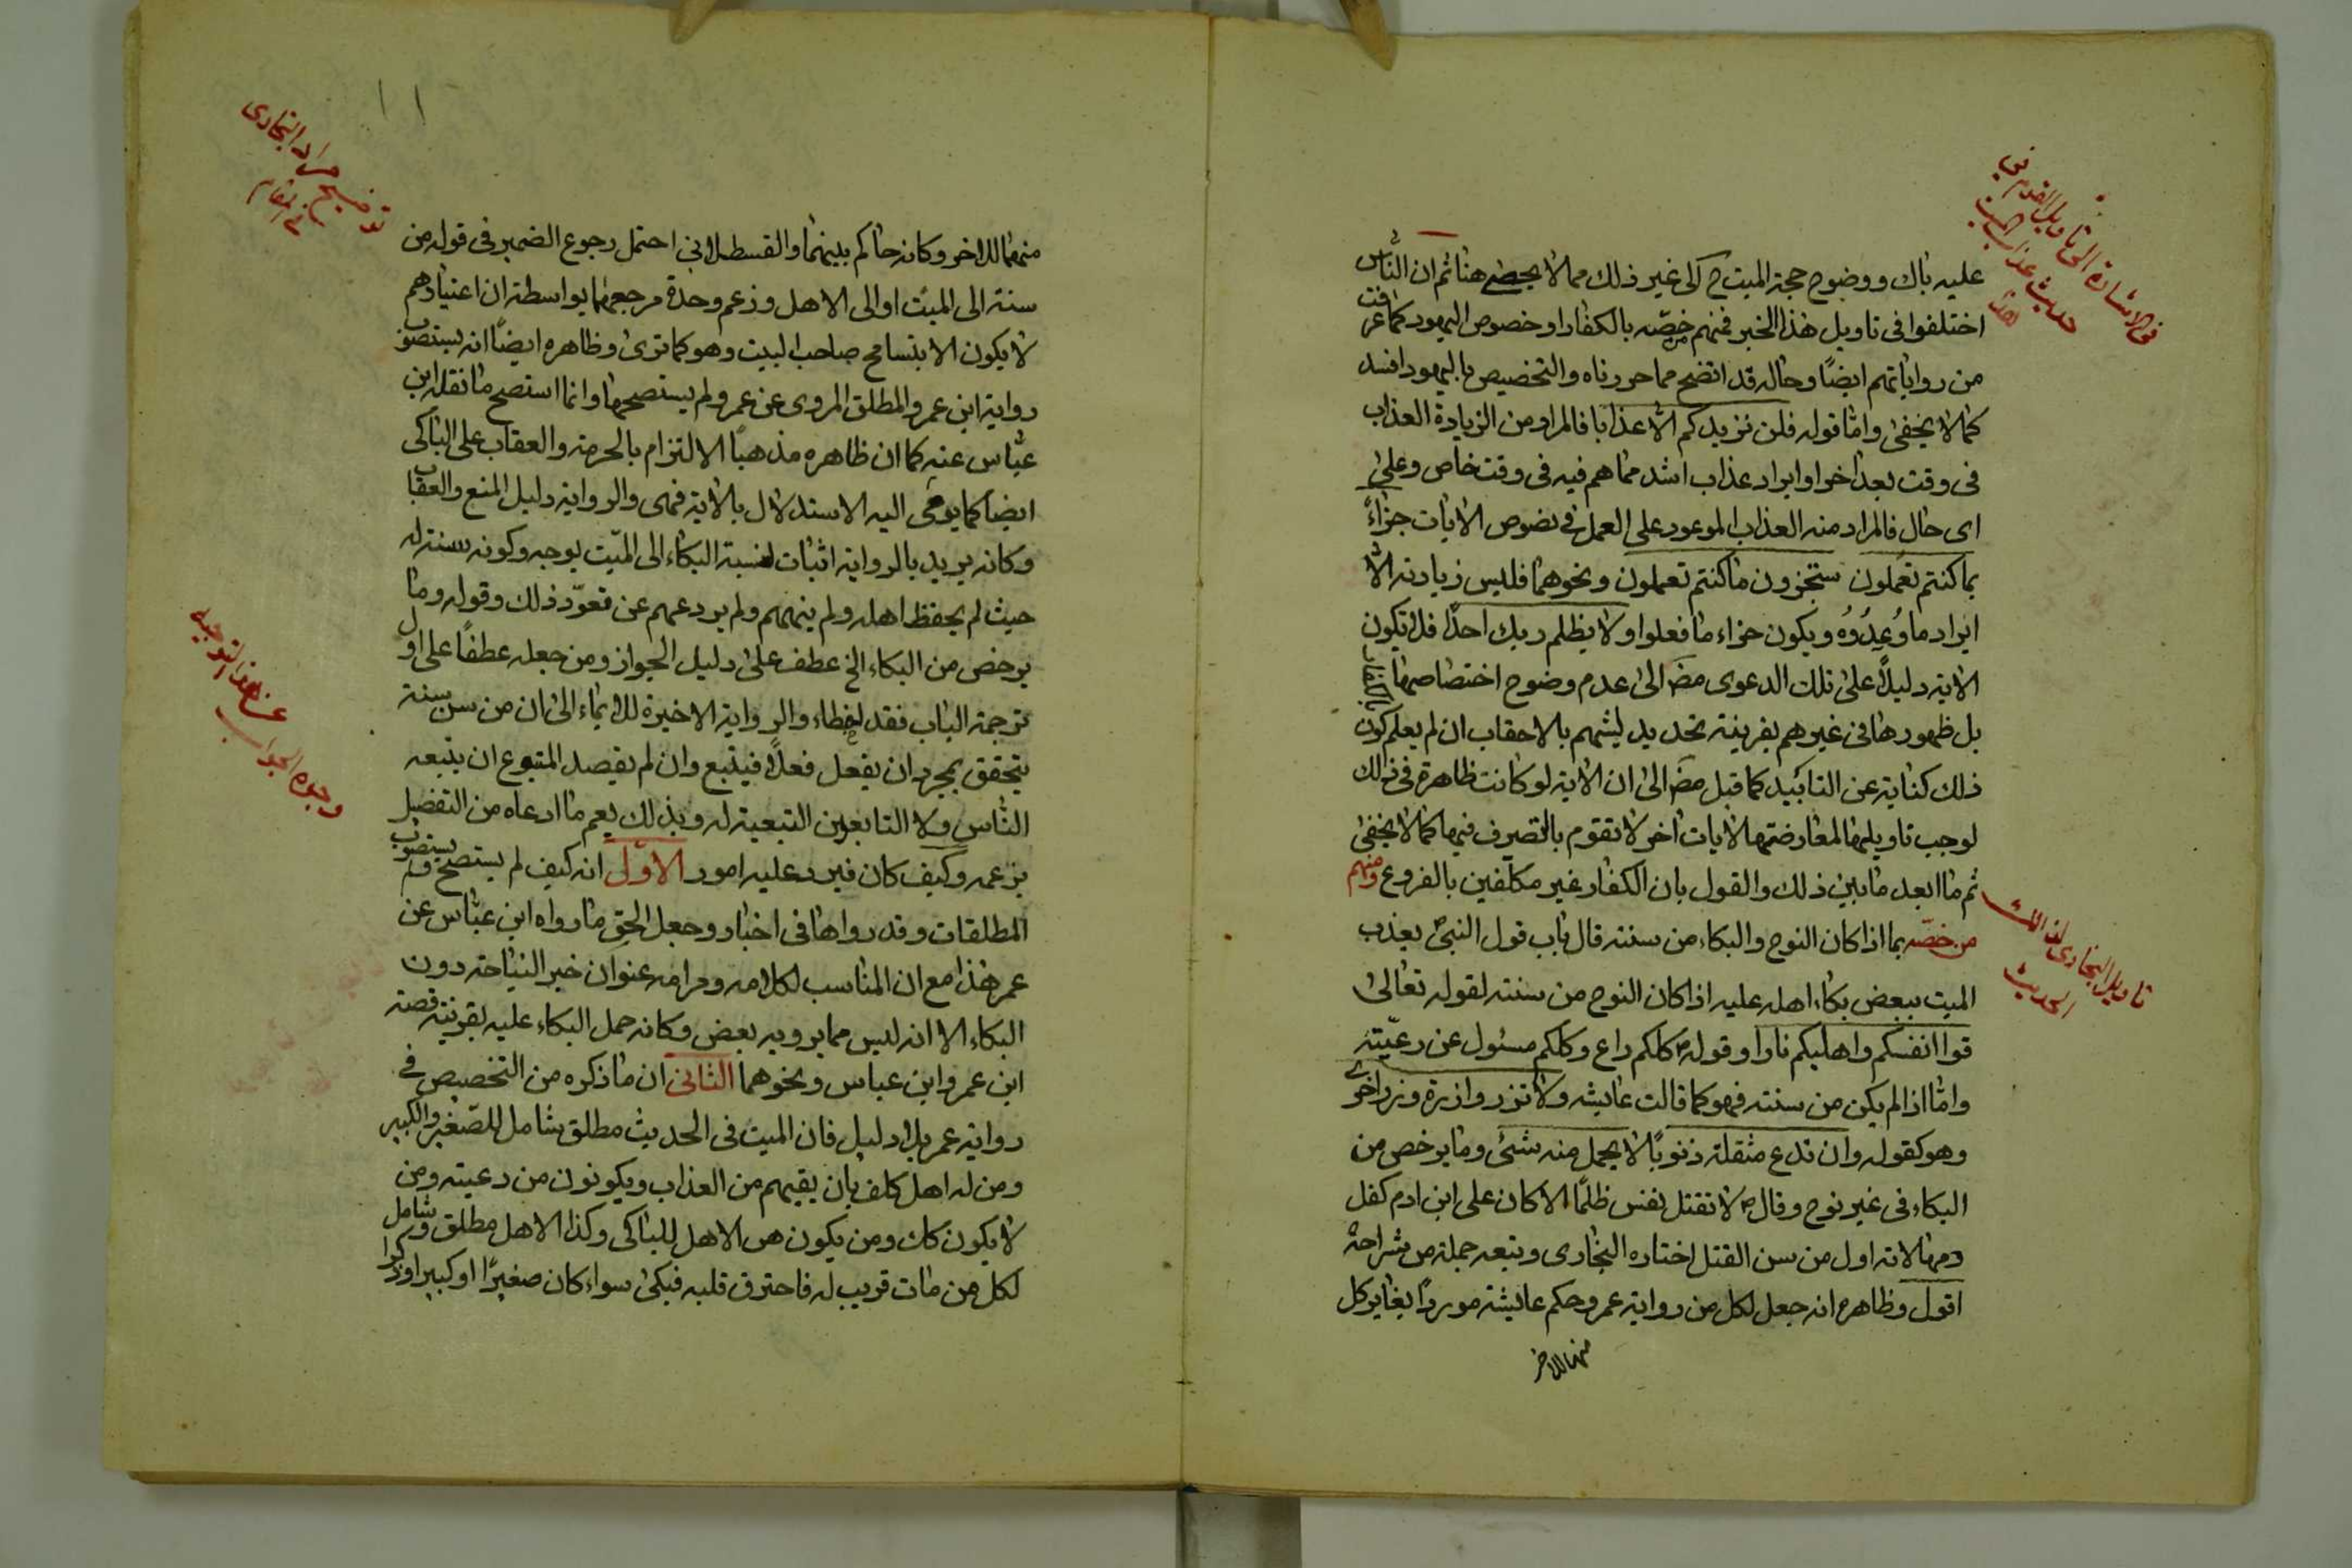 عليه باك ووضوح حجة الميت ح كا الى غير ذلك مما لا يحصى هنا ثم ان الناس
اختلفوا فى تاويل هذا الخبر فمنهم من خصّه بالكفار او خصوص اليهود كما عرفت
من رواياتهم ايضًا وحاله قد اتضح مما حررناه والتخصيص باليهود افسد
كما لا يخفى وامّا قوله فلن نزيدكم الّا عذابا فالمراد من الزيادة العذاب
فى وقت بعد اخر او ايراد عذاب اشد مما هم فيه فى وقت خاص وعلى
اى حال فالمراد منه العذاب الموعود على العمل فى نصوص الايات جزاءً
بما كنتم تعملون ستجزون ما كنتم تعملون ونحوهما فليس زيادته الّا
ايراد ما وُعِدُوُه ويكون جزاء ما فعلوا ولا يظلم ربك احدًا فلا تكون
الاية دليلًا على تلك الدعوى مضَ الى عدم وضوح اختصاصها بالكفار
بل ظهورها فى غيرهم بقرينة تحديد لبثهم بالاحقاب ان لم يعلم كون
ذلك كناية عن التابيد كما قيل مضَ الى ان الاية لو كانت ظاهرة فى ذلك
لوجب تاويلها لمعارضتها لايات اخر لا تقوم بالتصرف فيها كما لا يخفى
ثم ما ابعد ما بين ذلك والقول بان الكفار غير مكلفين بالفروع ومنهم
من خصّه بما اذا كان النوح والبكاء من سنته قال باب قول النبىّ يعذب
الميت ببعض بكاء اهله عليه اذا كان النوح من سنته لقوله تعالى
قوا انفسكم واهليكم نارا وقوله ص كلكم راع وكلكم مسئول عن رعيّته
وامّا اذا لم يكن من سنته فهو كما قالت عايشه ولا تزر وازرة وزر اخرى
وهو كقوله وان تدع مثقلة ذنوبًا لا يحمل منه شئ وما يرخص من
البكاء فى غير نوح وقال ص لا تقتل نفس ظلمًا الا كان على ابن ادم كفل
دمها لانه اول من سن القتل اختاره البخارى وتبعه جملة من شراحه
اقول وظاهره انه جعل لكل من رواية عمر وحكم عايشة موردًا يغاير كل
منهما للاخر
فى الاشارة الى تاويل القوم فى
حديث عذاب الميت
هذا
تاويل البخارى لهذا
الحديث
منهما للاخر وكانه حاكم بينهما والقسطلانى احتمل رجوع الضمير فى قوله من
سنته الى الميّت او الى الاهل وزعم وحدة مرجعهما بواسطة ان اعتيادهم
لا يكون الا بتسامح صاحب البيت وهو كما ترى وظاهره ايضًا انه يستصوب
رواية ابن عمر والمطلق المروى عن عمر ولم يستصحها وانما استصح ما نقله ابن
عبّاس عنه كما ان ظاهره مذهبًا الالتزام بالحرمة والعقاب على الباكى
ايضا كما يومى اليه الاستدلال بالاية فهى والرواية دليل المنع والعقاب
وكانه يريد بالرواية اثبات نسبة البكاء الى الميّت بوجه وكونه سنة له
حيث لم يحفظ اهله ولم ينههم ولم يردعهم عن تعوّد ذلك وقوله وما
يرخص من البكاء الخ عطف على دليل الجواز ومن جعله عطفًا على اول
ترجمة الباب فقد اخطاء والرواية الاخيرة للايماء الى ان من سن سنة
يتحقق بمجرد ان يفعل فعلًا فيتبع وان لم يقصد المتبوع ان يتبعه
الناس ولا التابعين التبعية له وبذلك يعم ما ادعاه من التفصيل
بزعمه وكيف كان فيرد عليه امور الاوّل انه كيف لم يستصح ولم يستصوب
المطلقات وقد رواها فى اخبار وجعل الحق ما رواه ابن عبّاس عن
عمر هذا مع ان المناسب لكلامه ومرامه عنوان خبر النياحة دون
البكاء الا انه ليس مما يرويه بعض وكانه حمل البكاء عليه بقرينة قصة
ابن عمر وابن عباس ونحوهما الثانى ان ما ذكره من التخصيص فى
رواية عمر بلا دليل فان الميت فى الحديث مطلق شامل للصّغير والكبير
ومن له اهل كلف بان يقيهم من العذاب ويكونون من رعيته ومن
لا يكون كك ومن يكون هو الاهل للباكى وكذا الاهل مطلق وشامل
لكل من مات قريب له فاحترق قلبه فبكى سواء كان صغيرًا او كبيرا وذكرا
توضيح مراد البخارى
فى المقام
عن هذا التوجيه
وجوه الجواب